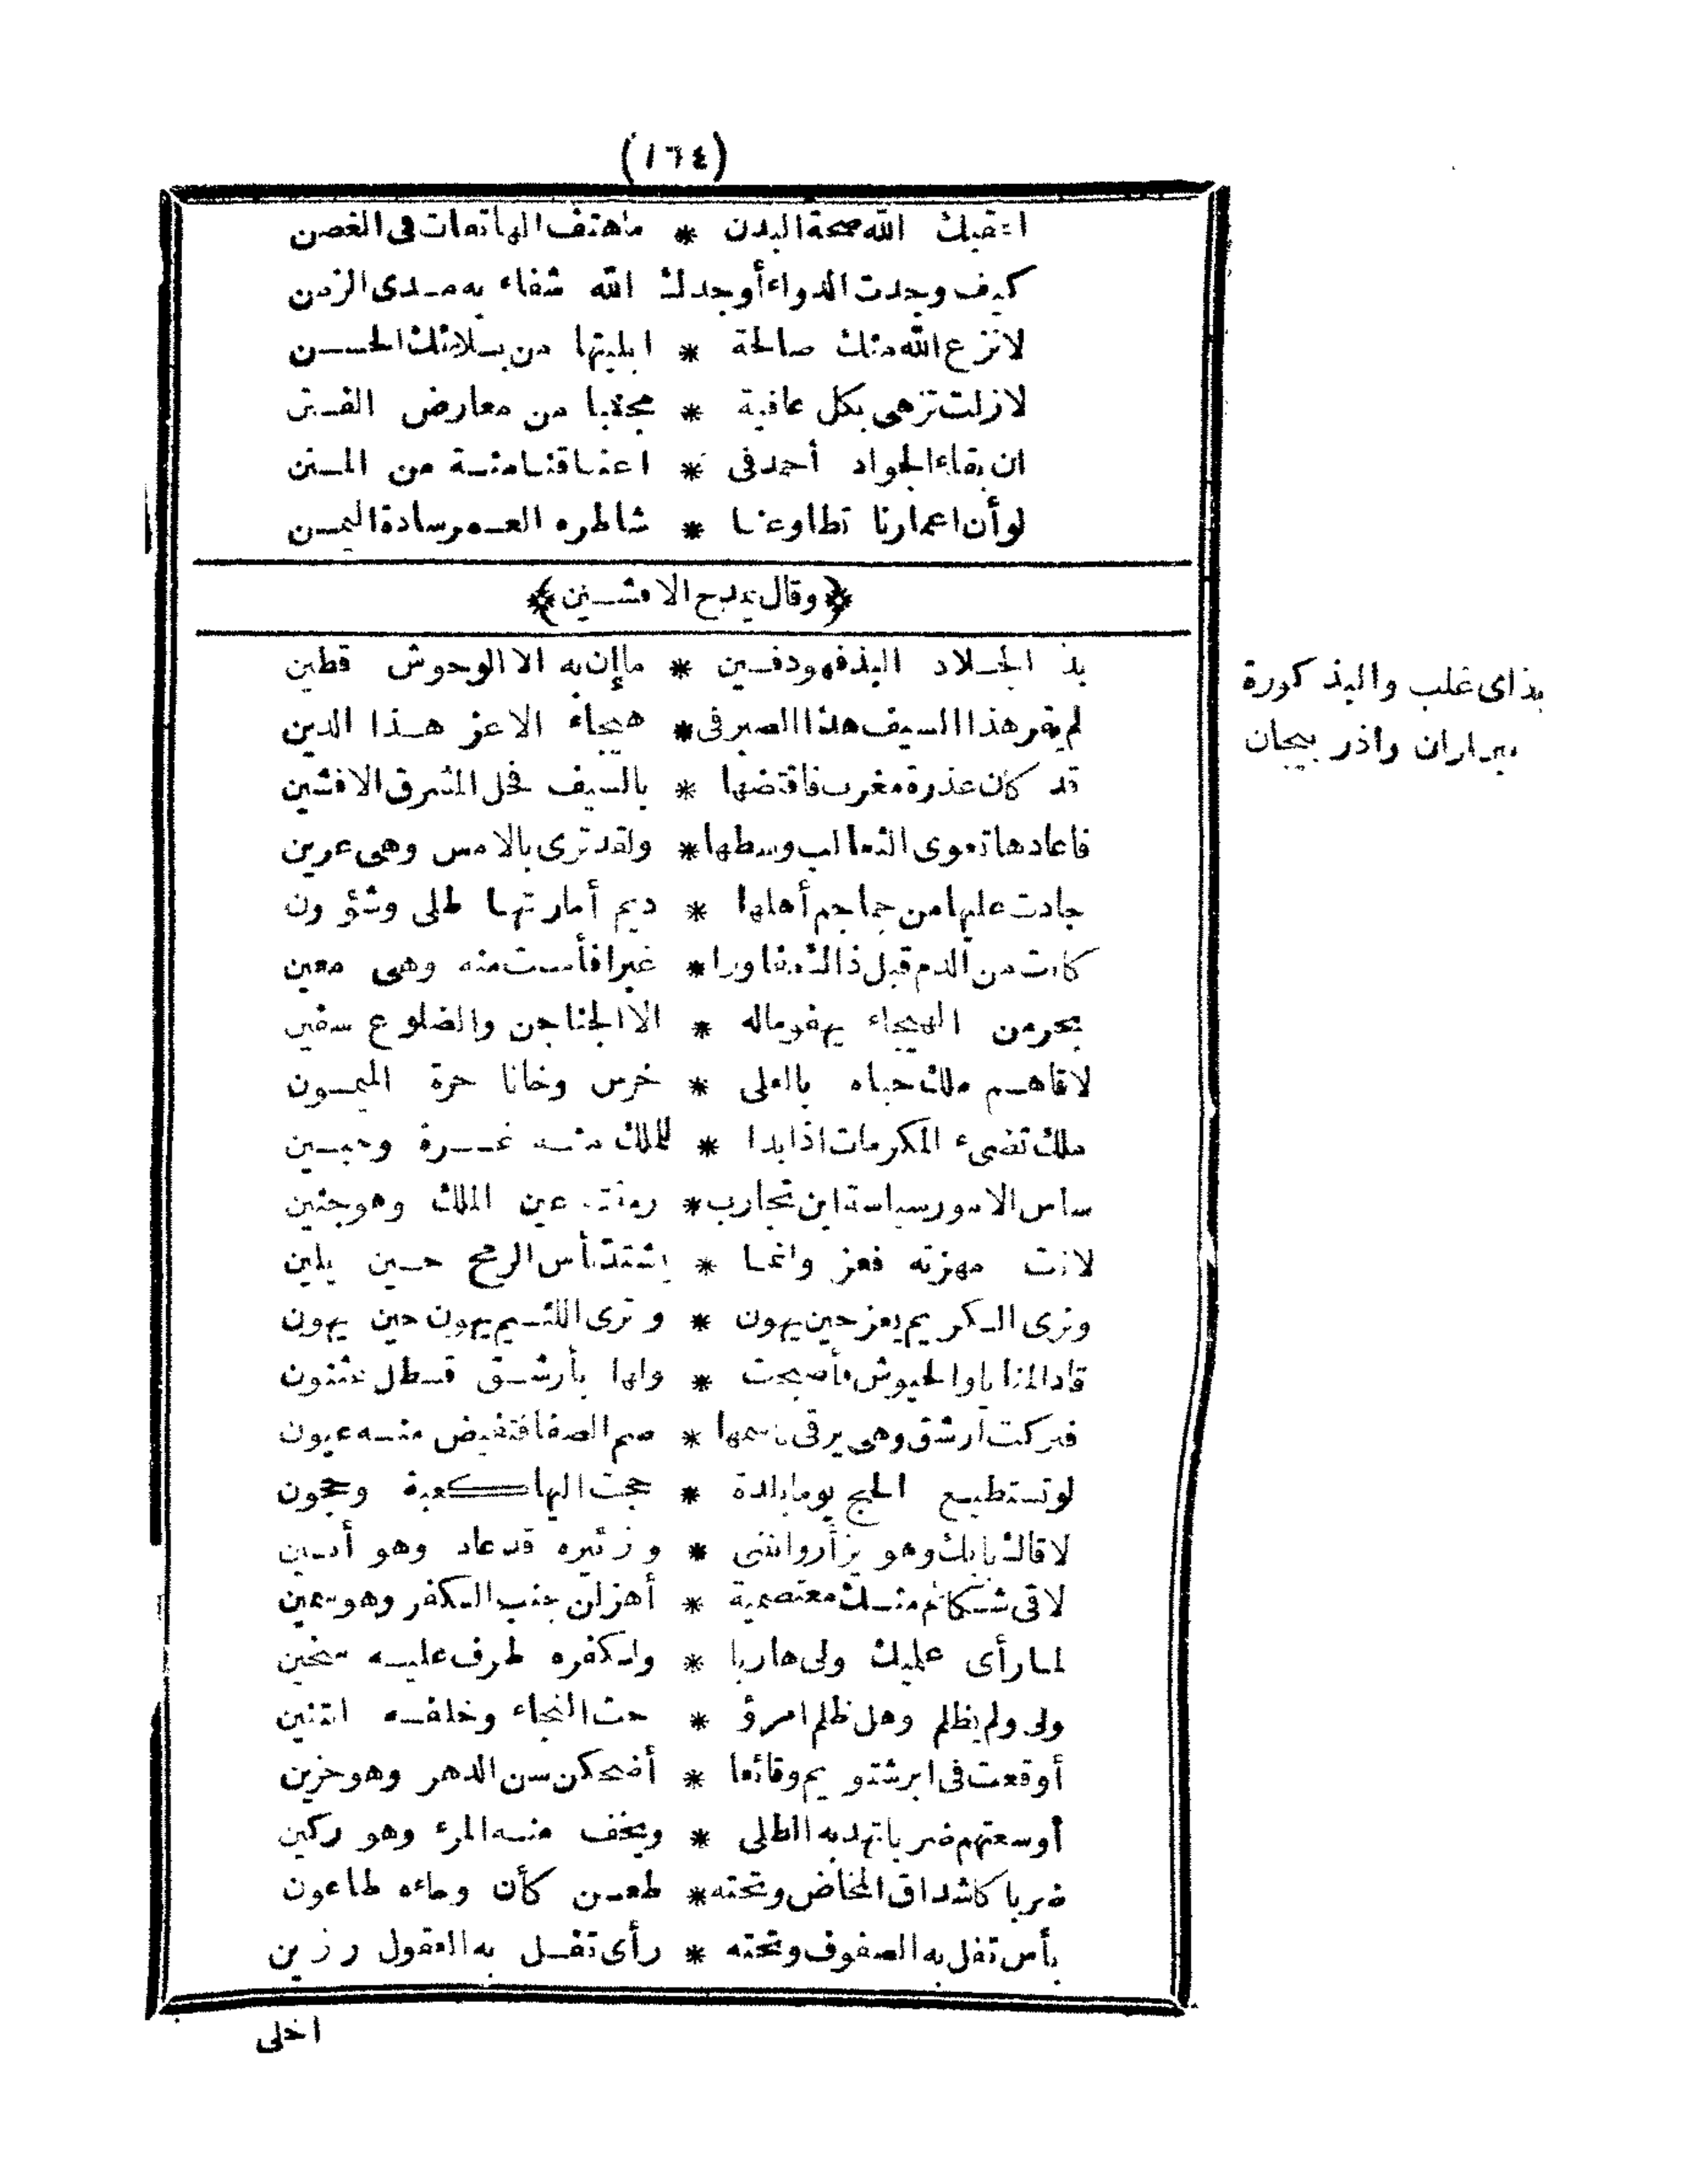 (١٦٤)
اعقبك الله صحة البدن * ما هتف الهاتفات فى الغصن
كيف وجدت الدواء أوجدك الله شفاء به مدى الزمن
لا نزع الله منك صالحة * ابليتها من بلائك الحسن
لا زلت تزهى بكل عافية * مجتنبا من معارض الفتن
ان بقاء الجواد أحمد فى * اعناقنا منة من المنن
لو أن اعمارنا تطاوعنا * شاطره العمر سادة اليمن
﴿وقال يمدح الافشين﴾
بذ الجلاد البذ فهو دفين * ما إن به الا الوحوش قطين
لم يقر هذا السيف هذا الصبر فى * هيجاء الا عز هذا الدين
قد كان عذرة مغرب فاقتضها * بالسيف فحل المشرق الافشين
فاعادها تعوى الثعالب وسطها * ولقد ترى بالامس وهى عرين
جادت عليها من جماجم أهلها * ديم أمارتها طلى وشؤون
كانت من الدم قبل ذاك مفاورا * غبرا فأمست منه وهى معين
بحر من الهيجاء يهفو ماله * الا الجناجن والضلوع سفين
لاقاهم ملك حباه بالعلى * خرس وخانا خرة الميمون
ملك تضىء المكرمات اذا بدا * للملك منه غرة وجبين
ساس الامور سياسة ابن تجارب * رمقته عين الملك وهو جنين
لانت مهزته فعز وانما * يشتد بأس الرمح حين يلين
وترى الكريم يعز حين يهون * وترى اللئيم يهون حين يهون
قاد المنايا والجيوش فأصبحت * ولها بأرشق قسطل عثنون
فتركت أرشق وهى يرقى باسمها * صم الصفا فتفيض منه عيون
لو تستطيع الحج يوما بلدة * حجت اليها كعبة وحجون
لاقاك بابك وهو يزأر وانثنى * وزئيره قد عاد وهو أنين
لاقى شكائم منك معتصمية * أهزلن جنب الكفر وهو سمين
لما رأى علميك ولى هاربا * ولكفره طرف عليه سخين
ولى ولم يظلم وهل ظلم امرؤ * حث النجاء وخلفه التنين
أوقعت فى ابرشتويم وقائعا * أضحكن سن الدهر وهو حزين
أوسعتهم ضربا تهد به الطلى * ويخف منه المرء وهو ركين
ضربا كاشداق المخاض وتحته * طعن كأن وجاءه طاعون
بأس تفل به الصفوف وتحته * رأى تفل به العقول رزين
اخلى
بذ اى غلب والبذ كورة
بين اران واذر بيجان